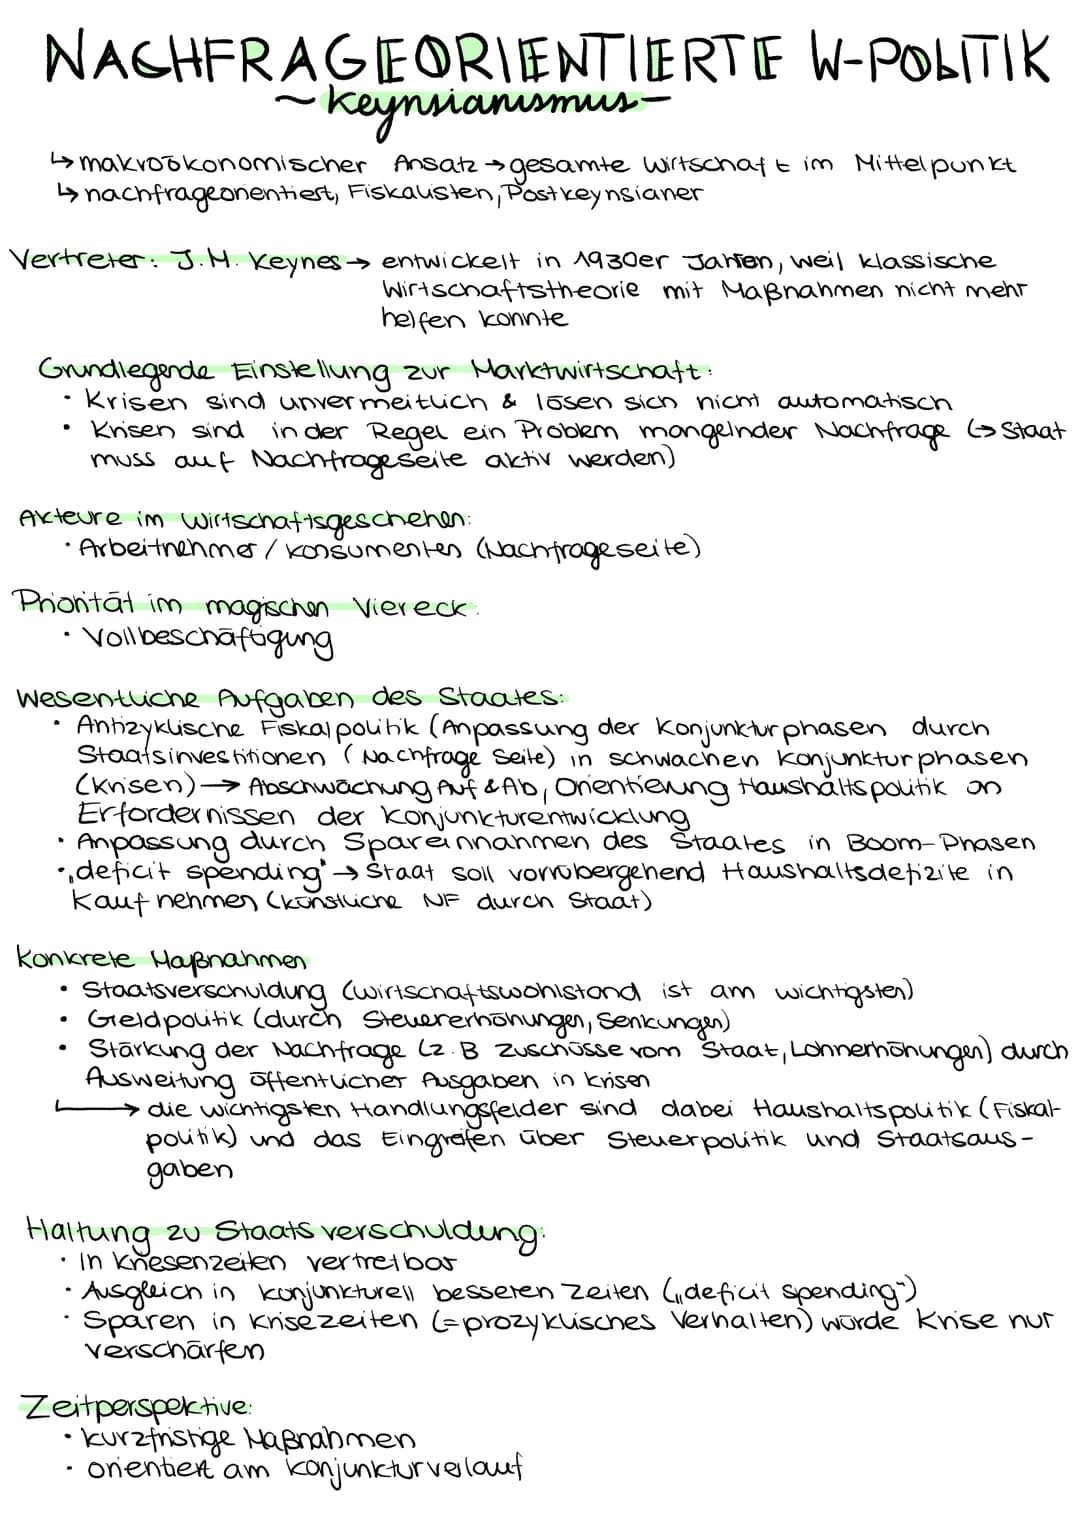 NACHFRAGEORIENTIERTE W-POLITIK
~ Keynsianismus -
↳ makroökonomischer Ansatz → gesamte Wirtschaft im Mittelpunkt
↳ nachfrageorientiert, Fiskalisten, Postkeynsianer
Vertreter: J.M. Keynes → entwickelt in 1930er Jahren, weil klassische
Wirtschaftstheorie mit Maßnahmen nicht mehr
helfen konnte
Grundlegende Einstellung zur Marktwirtschaft:
• Krisen sind unvermeitlich & lösen sich nicht automatisch
• Krisen sind in der Regel ein Problem mangelnder Nachfrage (→ Staat
muss auf Nachfrageseite aktiv werden)
Akteure im Wirtschaftsgeschehen:
• Arbeitnehmer / Konsumenten (Nachfrageseite)
Priorität im magischen Viereck:
• Vollbeschäftigung
Wesentliche Aufgaben des Staates:
• Antizyklische Fiskalpolitik (Anpassung der Konjunkturphasen durch
Staatsinvestitionen (Nachfrage Seite) in schwachen Konjunkturphasen
(Krisen) → Abschwächung Auf & Ab, Orientierung Haushaltspolitik an
Erfordernissen der Konjunkturentwicklung
• Anpassung durch Spareinnahmen des Staates in Boom-Phasen
• „deficit spending" → Staat soll vorrübergehend Haushaltsdefizite in
Kauf nehmen (künstliche NF durch Staat)
Konkrete Maßnahmen
• Staatsverschuldung (Wirtschaftswohlstand ist am wichtigsten)
• Geldpolitik (durch Steuererhöhungen, Senkungen)
• Stärkung der Nachfrage (z.B Zuschüsse vom Staat, Lohnerhöhungen) durch
Ausweitung öffentlicher Ausgaben in Krisen
↳ die wichtigsten Handlungsfelder sind dabei Haushaltspolitik (Fiskal-
politik) und das Eingreifen über Steuerpolitik und Staatsaus-
gaben
Haltung zu Staatsverschuldung:
• In Kriesenzeiten vertretbar
• Ausgleich in konjunkturell besseren Zeiten („deficit spending")
• Sparen in Krisezeiten (= prozyklisches Verhalten) würde Krise nur
verschärfen
Zeitperspektive:
• kurzfristige Maßnahmen
• orientiert am Konjunkturverlauf